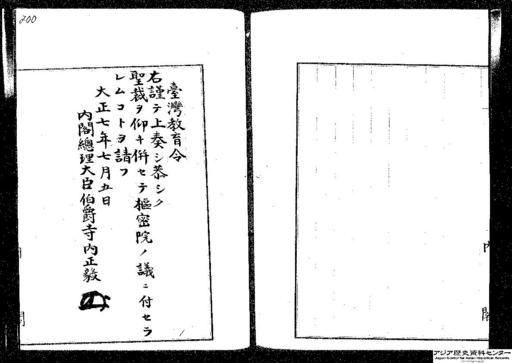 200
臺灣教育令
右謹テ上奏シ恭シク
聖裁ヲ仰キ併セテ樞密院ノ議ニ付セラ
レムコトヲ請フ
大正七年七月五日
内閣總理大臣伯爵寺内正毅
内閣
閣
アジア歴史資料センター
Japan Center for Asian Historical Records